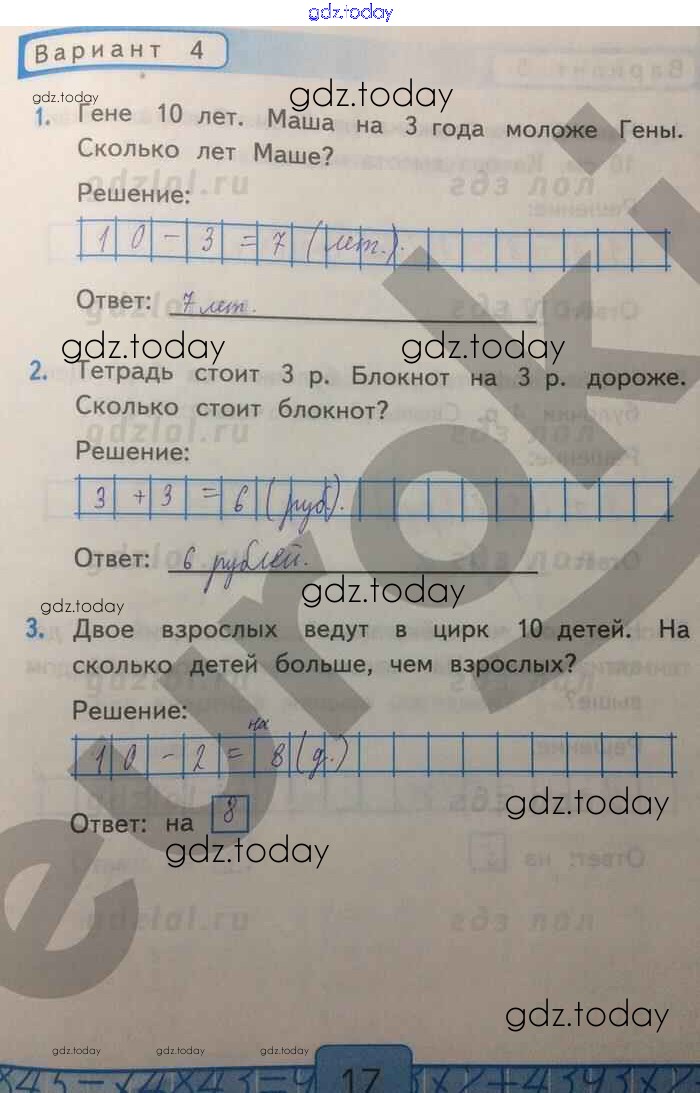 gdz.today
Вариант 4
gdz.today
gdz.today
1. Гене 10 лет. Маша на 3 года моложе Гены.
Сколько лет Маше?
Решение:
10 - 3 = 7 (лет.).
Ответ: 7 лет.
gdz.today gdz.today
2. Тетрадь стоит 3 р. Блокнот на 3 р. дороже.
Сколько стоит блокнот?
Решение:
3 + 3 = 6 (руб).
Ответ: 6 рублей.
gdz.today gdz.today
3. Двое взрослых ведут в цирк 10 детей. На
сколько детей больше, чем взрослых?
Решение:
на
10 - 2 = 8 (д.)
gdz.today
Ответ: на 8
gdz.today
gdz.today
gdz.today gdz.today gdz.today
17
euroki